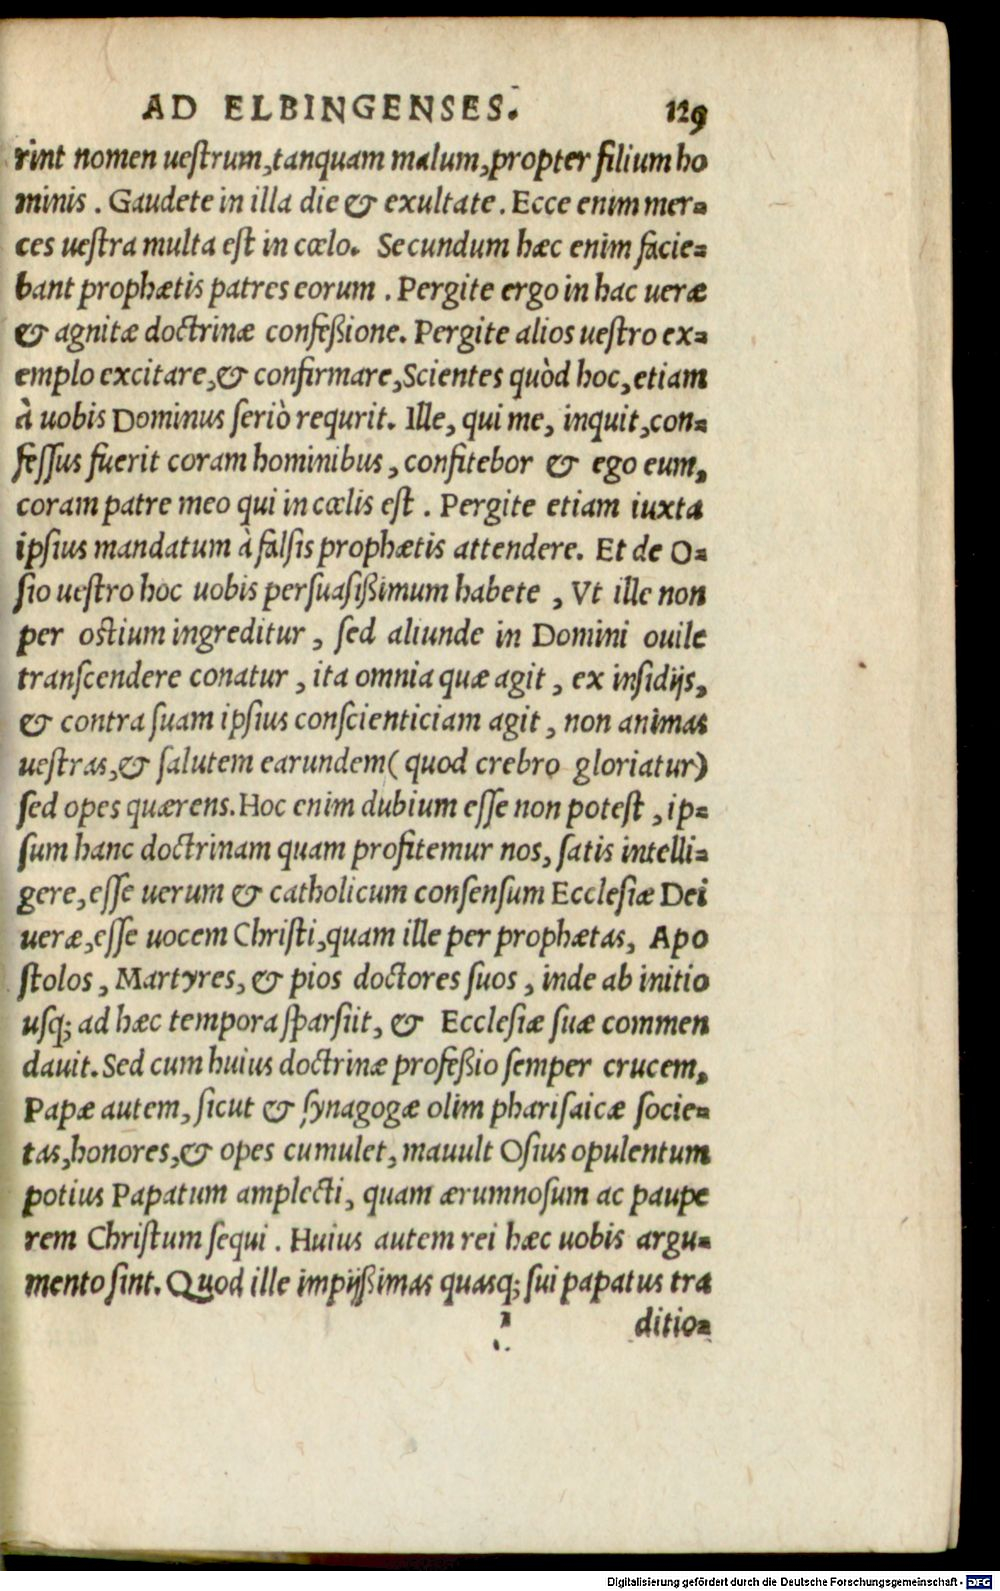 AD ELBINGENSES. 129
rint nomen uestrum, tanquam malum, propter filium ho
minis. Gaudete in illa die & exultate. Ecce enim mer=
ces uestra multa est in cœlo. Secundum hæc enim facie=
bant prophætis patres eorum. Pergite ergo in hac ueræ
& agnitæ doctrinæ confeßione. Pergite alios uestro ex=
emplo excitare, & confirmare, Scientes quòd hoc, etiam
à uobis Dominus seriò requrit. Ille, qui me, inquit, con=
fessus fuerit coram hominibus, confitebor & ego eum,
coram patre meo qui in cœlis est. Pergite etiam iuxta
ipsius mandatum à falsis prophætis attendere. Et de O=
sio uestro hoc uobis persuasißimum habete, Vt ille non
per ostium ingreditur, sed aliunde in Domini ouile
transcendere conatur, ita omnia quæ agit, ex insidijs,
& contra suam ipsius conscienticiam agit, non animas
uestras, & salutem earundem (quod crebro gloriatur)
sed opes quærens. Hoc enim dubium esse non potest, ip=
sum hanc doctrinam quam profitemur nos, satis intelli=
gere, esse uerum & catholicum consensum Ecclesiæ Dei
ueræ, esse uocem Christi, quam ille per prophætas, Apo
stolos, Martyres, & pios doctores suos, inde ab initio
usq; ad hæc tempora sparsiit, & Ecclesiæ suæ commen
dauit. Sed cum huius doctrinæ profeßio semper crucem,
Papæ autem, sicut & synagogæ olim pharisaicæ socie=
tas, honores, & opes cumulet, mauult Osius opulentum
potius Papatum amplecti, quam ærumnosum ac paupe
rem Christum sequi. Huius autem rei hæc uobis argu=
mento sint. Quod ille impijßimas quasq; sui papatus tra
ditio=
Digitalisierung gefördert durch die Deutsche Forschungsgemeinschaft - DFG